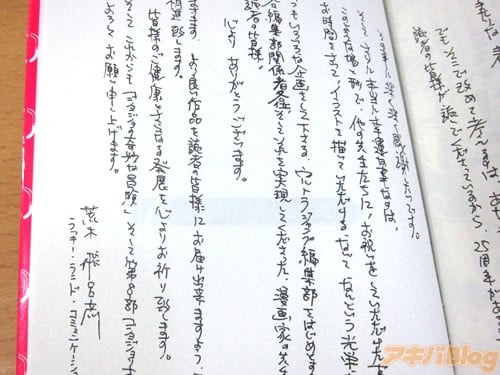 でもそこで改めて考えるのは、
読者の皆様が読んでくださっているから、25周年が
深く深く感謝したいです。
そして、さらに本当に幸運な事なのは、
他の先生たちに「お祝い」をしていただけた
お時間をさいてイラストを描いていただけるなんて なんという光栄
いろいろな企画をして下さる、ウルトラジャンプ編集部をはじめとす
編集部関係者各位、そしてそれを実現してくださった、漫画家の先生
読者の皆様。
心より ありがとうございます。
ます。より良い作品を読者の皆様にお届け出来ますよう、
精進致します。
皆様のご健康とさらなる発展を心よりお祈り致します。
そして これからも「ジョジョの奇妙な冒険」、そして第8部「ジョジョ
よろしくお願い申し上げます。
荒木 飛呂彦
ラッキー・ランド・コミュニケーション
アキバBlog